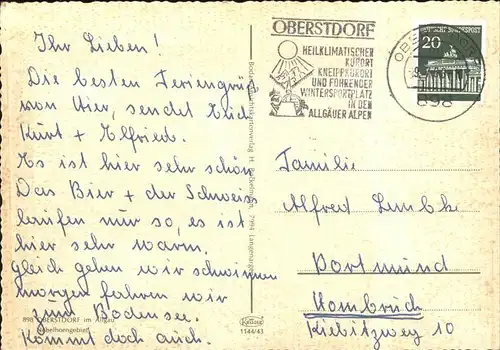 Ihr Lieben!
Die besten Feriengrüße
von hier, sendet Euch
Kurt + Elfried.
Es ist hier sehr schön
Das Bier + der Schweiß
laufen nur so, es ist
hier sehr warm.
Gleich gehen wir schwimmen
morgen fahren wir
zum Bodensee.
Kommt doch auch.
898 OBERSTDORF im Allgäu
Nebelhorngebiet
1144/43
OBERSTDORF
HEILKLIMATISCHER
KURORT
KNEIPPKURORT
UND FÜHRENDER
WINTERSPORTPLATZ
IN DEN
ALLGÄUER ALPEN
898
DEUTSCHE BUNDESPOST
20
Familie
Alfred Lembke
Dortmund
Hombruch
Kiebitzweg 10